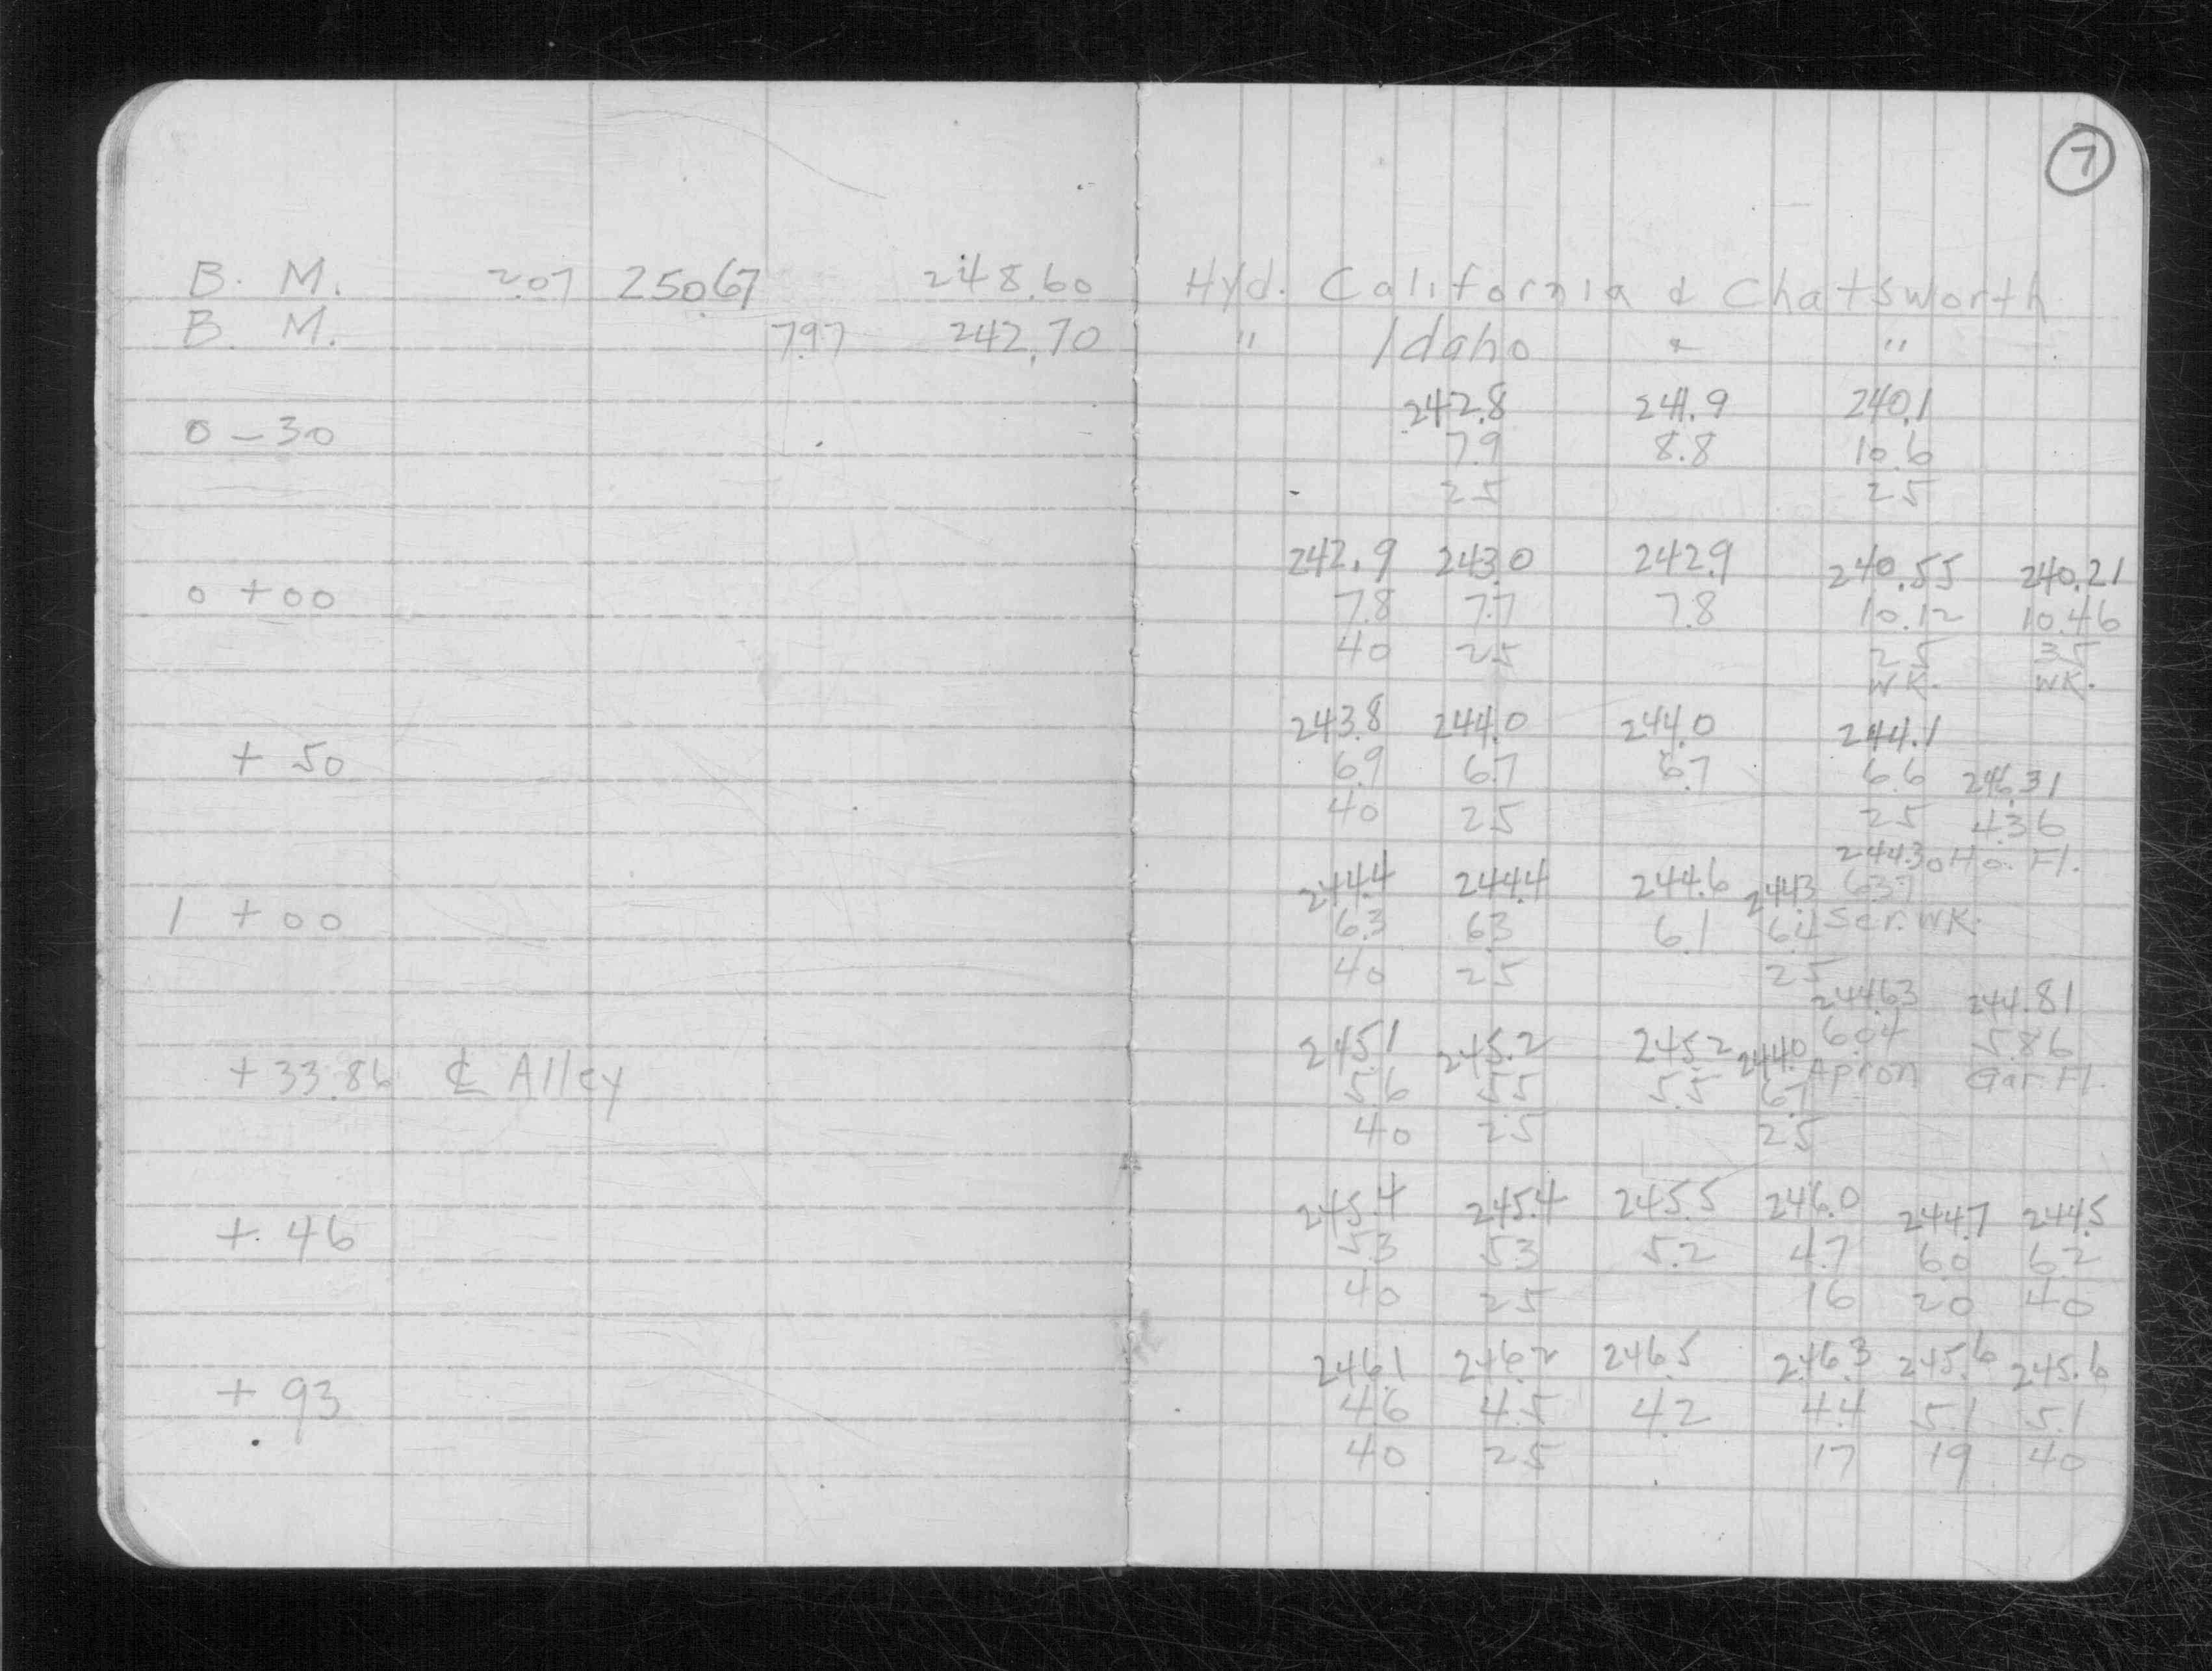 7
B. M. 2.07 250.67 248.60 Hyd. California & Chatsworth
B. M. 7.97 242.70 " Idaho & "
242.8 241.9 240.1
0 - 30 7.9 8.8 10.6
25 25
242.9 243.0 242.9 240.55 240.21
0 + 00 7.8 7.7 7.8 10.12 10.46
40 25 25 35
WK. WK.
243.8 244.0 244.0 244.1
+ 50 6.9 6.7 6.7 6.6 246.31
40 25 25 4.36
244.30 Ho. Fl.
244.4 244.4 244.6 244.3 6.37
1 + 00 6.3 6.3 6.1 6.4 Ser. WK.
40 25 25
244.63 244.81
245.1 245.2 245.2 244.0 6.04 5.86
+ 33.86 ℄ Alley 5.6 5.5 5.5 6.7 Apron Gar. Fl.
40 25 25
245.4 245.4 245.5 246.0 244.7 244.5
+ 46 5.3 5.3 5.2 4.7 6.0 6.2
40 25 16 20 40
246.1 246.2 246.5 246.3 245.6 245.6
+ 93 4.6 4.5 4.2 4.4 5.1 5.1
40 25 17 19 40